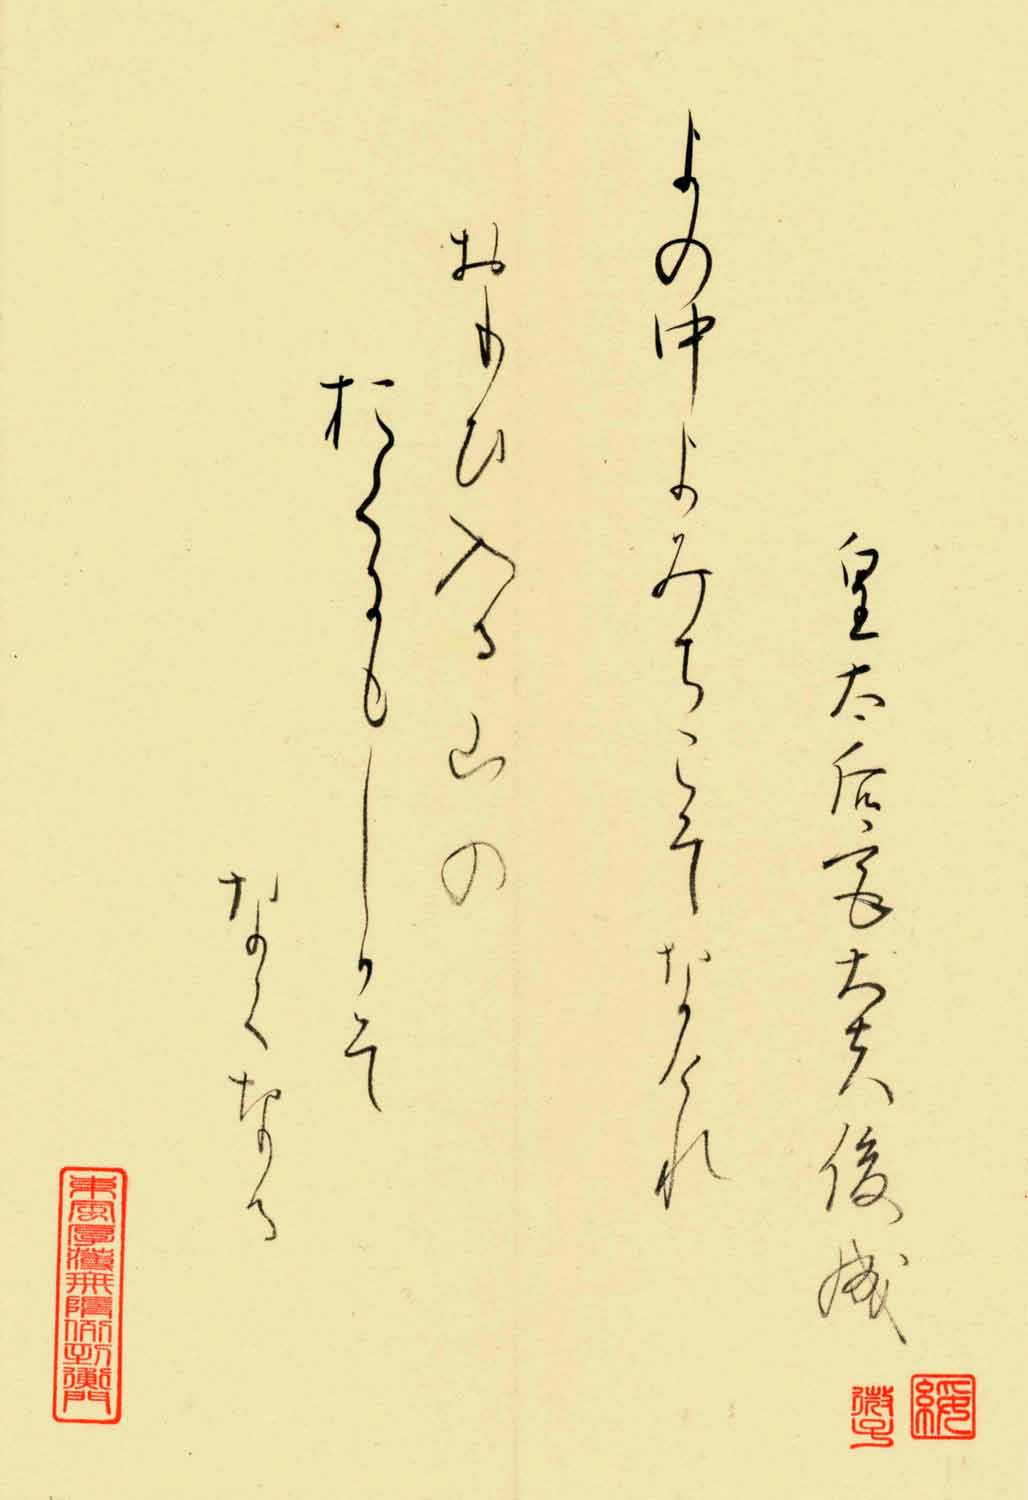 皇太后宮大夫俊成
よの中よみちこそなけれ
おもひ入る山の
おくにもしかそ
なくなる